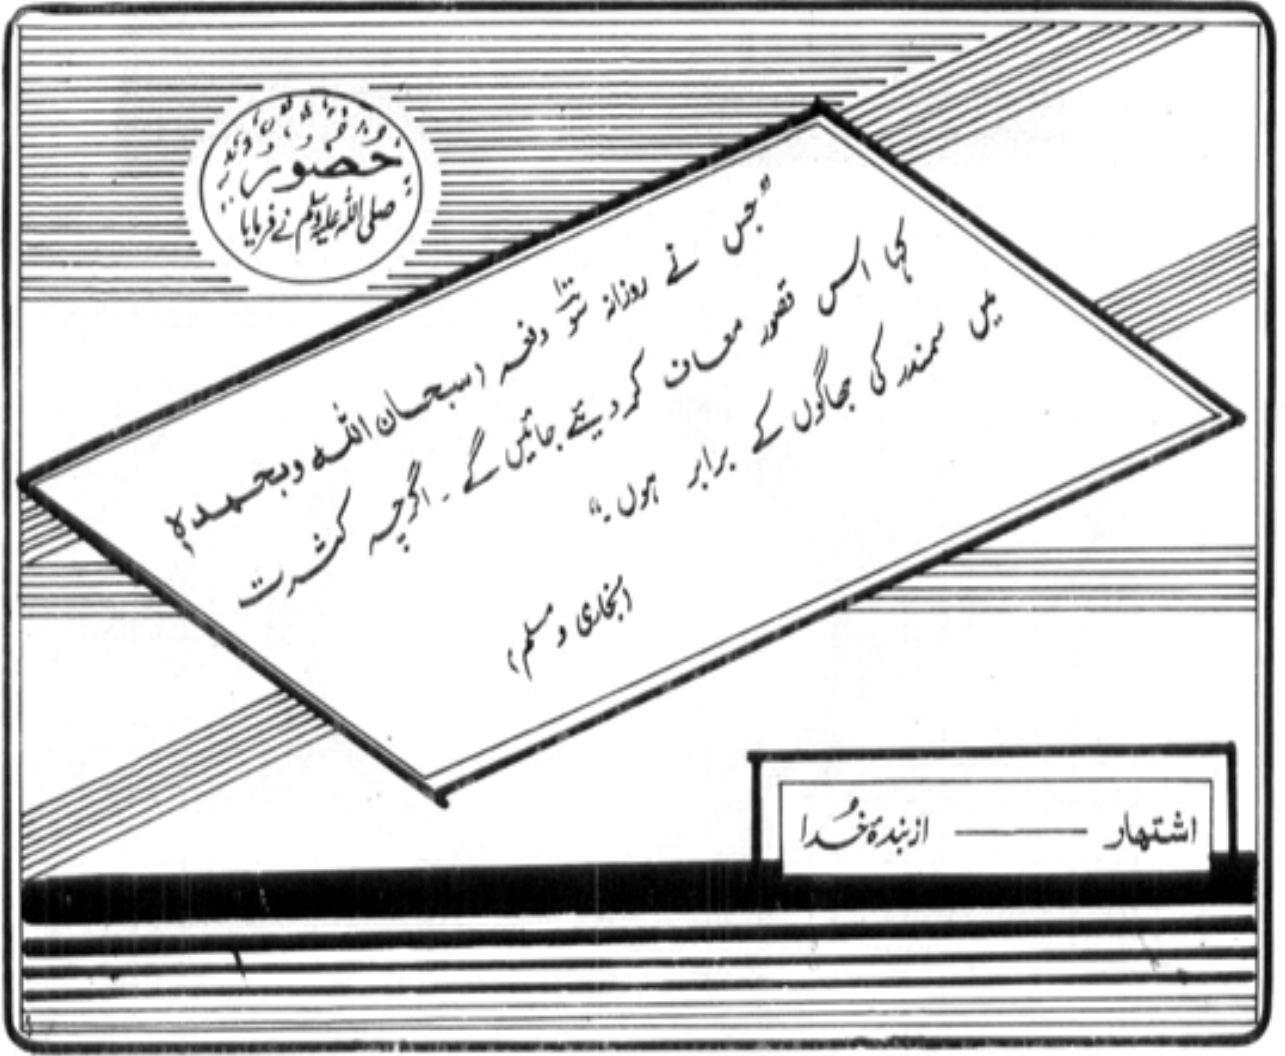 حضور
صلی اللہ علیہ وسلم نے فرمایا
"جس نے روزانہ سَو ۱۰۰ دفعہ (سبحان اللہ وبحمدہٖ)
کہا اس قصور معاف کر دیئے جائیں گے۔ اگرچہ کثرت
میں سمندر کی جھاگوں کے برابر ہوں۔"
(بخاری و مسلم)
اشتہار —— از بندۂ خُدا